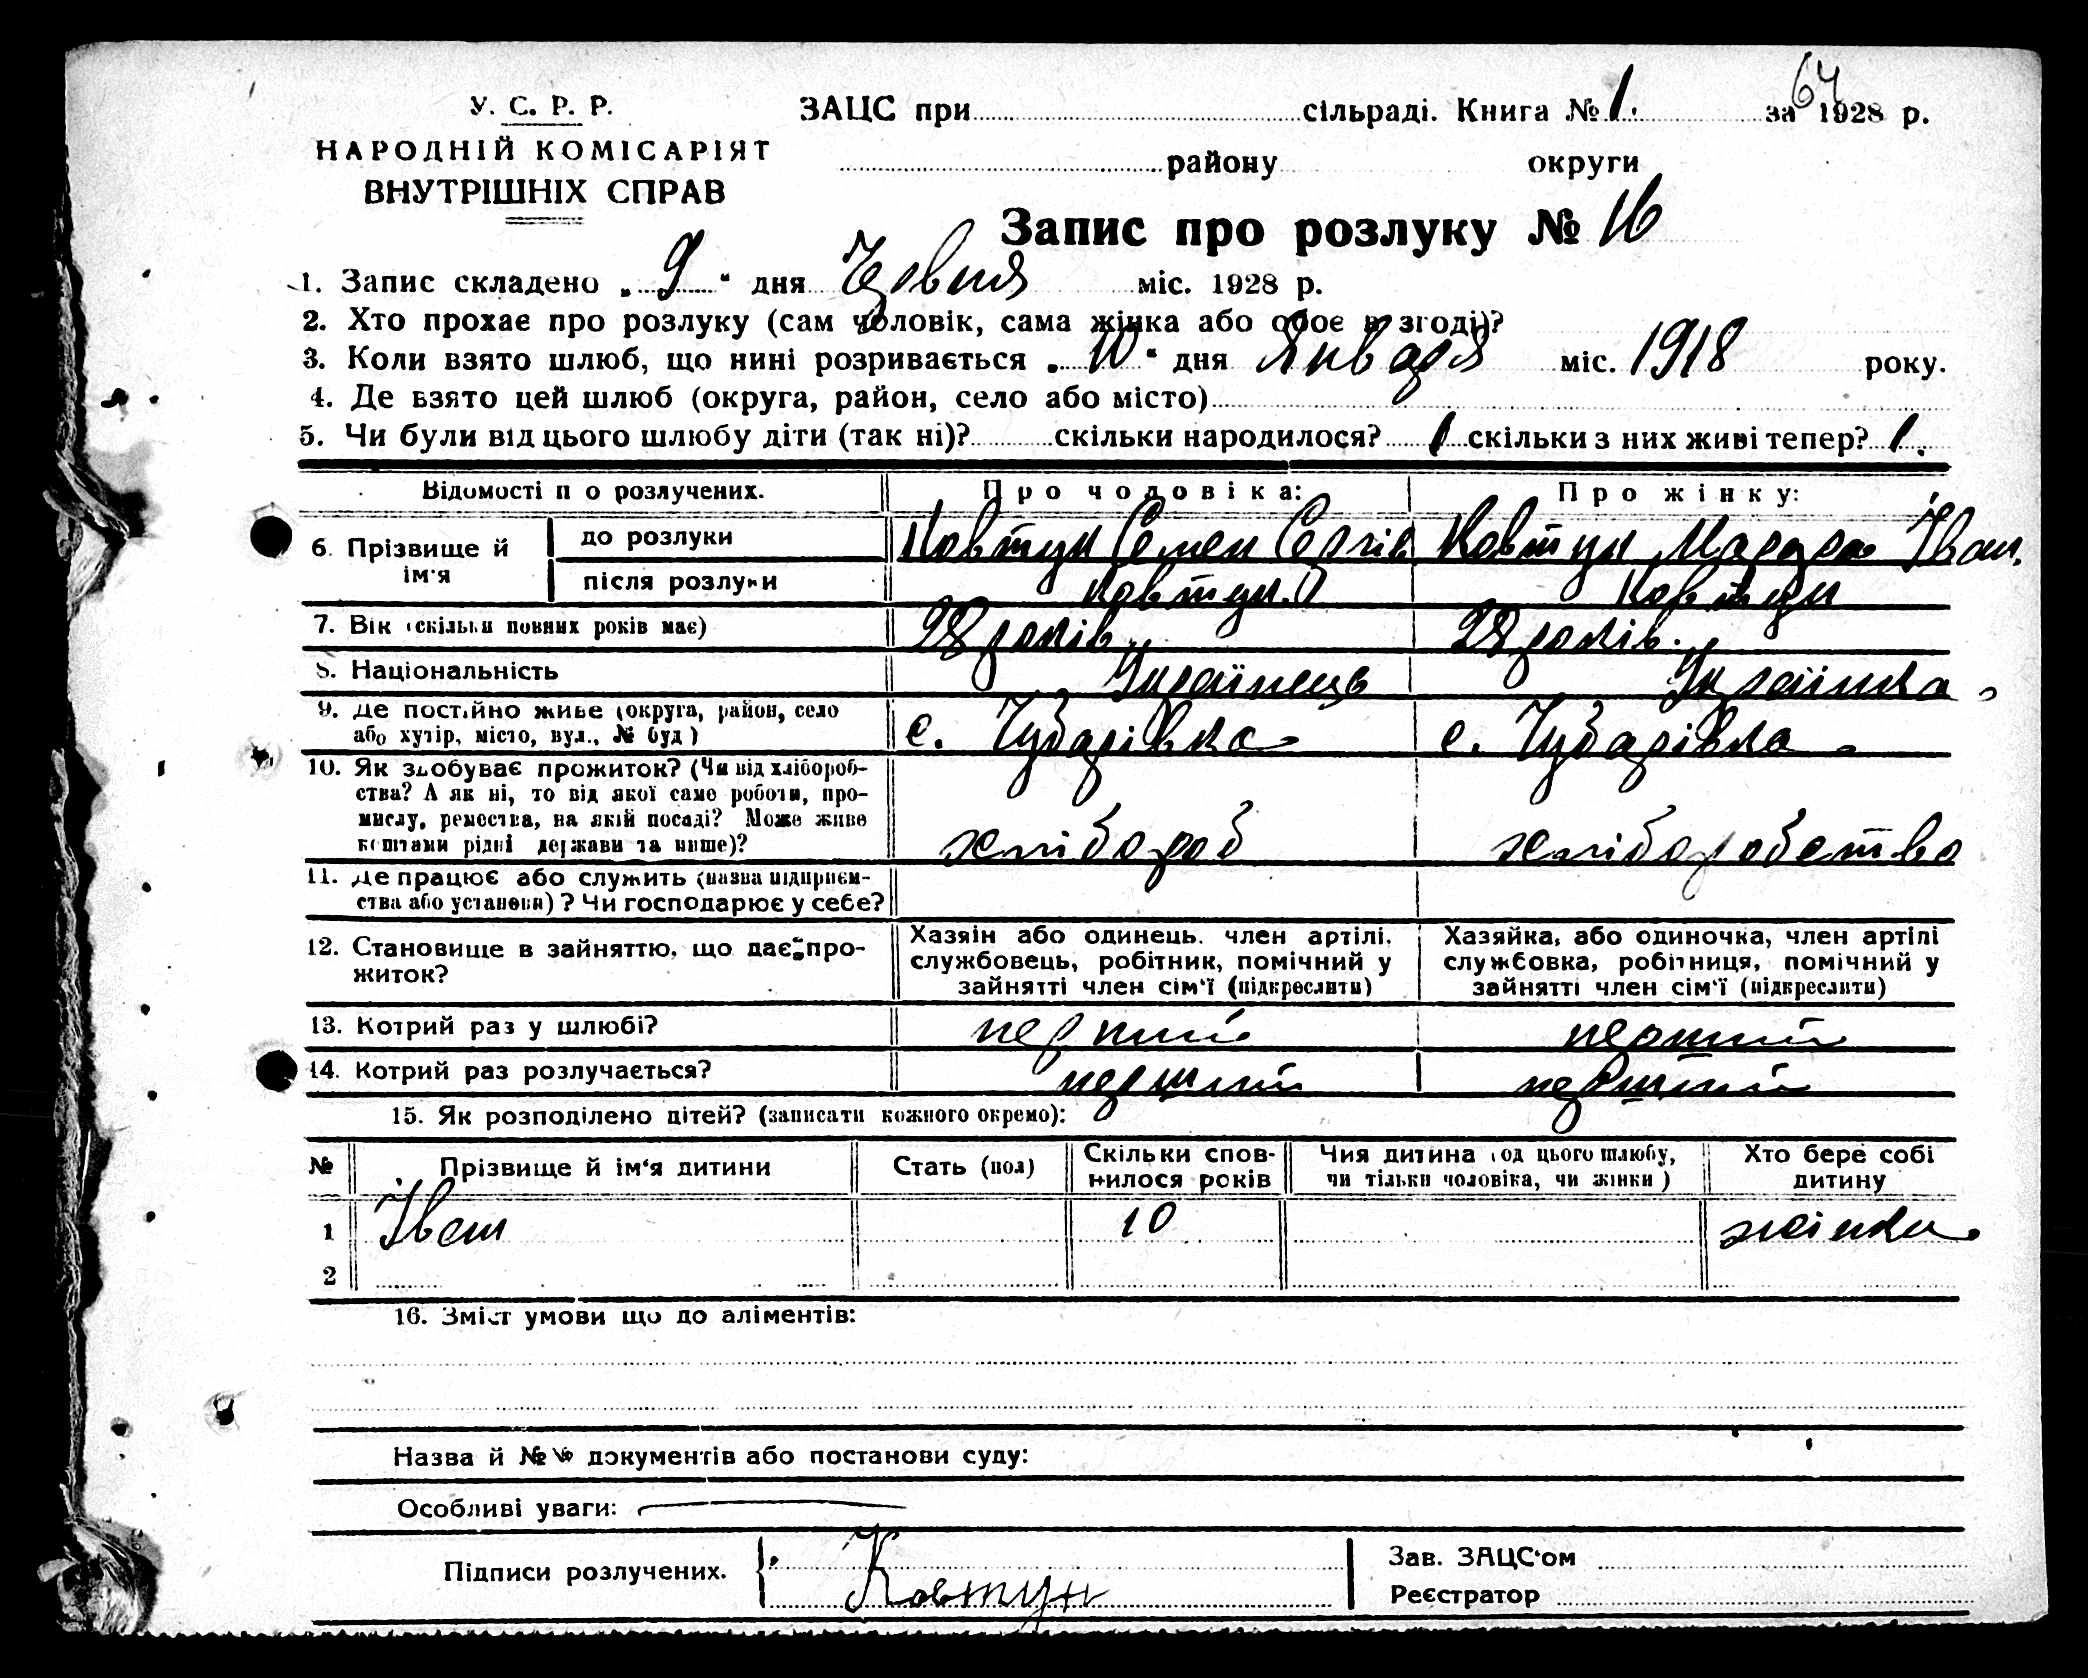 64
У. С. Р. Р.
НАРОДНІЙ КОМІСАРІЯТ
ВНУТРІШНІХ СПРАВ
ЗАЦС при сільраді. Книга № 1. за 1928 р.
району округи
Запис про розлуку № 16
1. Запис складено „ 9 “ дня Червня міс. 1928 р.
2. Хто прохає про розлуку (сам чоловік, сама жінка або обоє в згоді)?
3. Коли взято шлюб, що нині розривається „ 10 “ дня Января міс. 1918 року.
4. Де взято цей шлюб (округа, район, село або місто)
5. Чи були від цього шлюбу діти (так ні)? скільки народилося? 1 скільки з них живі тепер? 1.
Відомості п о розлучених. Про чоловіка: Про жінку:
6. Прізвище й ім'я
до розлуки Ковтун Семен Сергів Ковтун Іван.
після розлуки Ковтун. Ковтун
7. Вік (скільки повних років має) 28 років. 28 років.
8. Національність Українець Українка
9. Де постійно живе (округа, район, село або хутір, місто, вул., № буд) с. Чубарівка с. Чубарівка
10. Як здобуває прожиток? (Чи від хліборобства? А як ні, то від якої саме роботи, промислу, ремества, на якій посаді? Може живе коштами рідні держави та инше)? хлібороб хліборобство
11. Де працює або служить (назва підприємства або установи)? Чи господарює у себе?
12. Становище в зайняттю, що дає прожиток?
Хазяін або одинець. член артілі. службовець, робітник, помічний у зайнятті член сім'ї (підкреслити)
Хазяйка, або одиночка, член артілі службовка, робітниця, помічний у зайнятті член сім'ї (підкреслити)
13. Котрий раз у шлюбі? перший перший
14. Котрий раз розлучається? перший перший
15. Як розподілено дітей? (записати кожного окремо):
№ Прізвище й ім'я дитини Стать (пол) Скільки сповнилося років Чия дитина (од цього шлюбу, чи тільки чоловіка, чи жінки) Хто бере собі дитину
1 Іван 10 жінка
2
16. Зміст умови що до аліментів:
Назва й №№ документів або постанови суду:
Особливі уваги:
Підписи розлучених. Ковтун
Зав. ЗАЦС'ом
Реєстратор